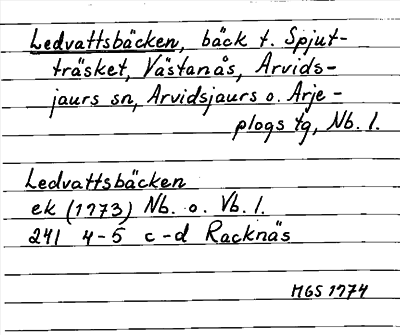 Ledvattsbäcken, bäck t. Spjut-
träsket, Västanås, Arvids-
jaurs sn, Arvidsjaurs o. Arje-
plogs tg, Nb. l.
Ledvattsbäcken
ek (1973) Nb. o. Vb. l.
241 4-5 c-d Racknäs
MGS 1974